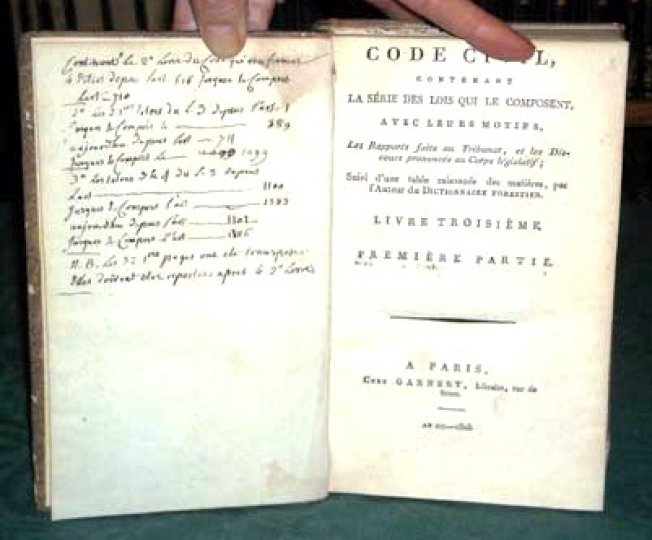 le 2e Livre du Code qui renferme
4 titres depuis l'art 516 jusques & compris
l'art 710
du L. 3 depuis l'art 1
jusques & compris le 789
depuis l'art 711
jusques & compris le
3° les titres 3 & 4 du L. 3 depuis
l'art 1100
jusques & compris l'art
depuis l'art
jusques & compris l'art
N. B. les 32 1ères pages ont été transposées
elles doivent être reportées après le 2e Livre
CODE CIVIL,
CONTENANT
LA SÉRIE DES LOIS QUI LE COMPOSENT,
AVEC LEURS MOTIFS,
Les Rapports faits au Tribunat, et les Dis-
cours prononcés au Corps législatif;
Suivi d'une table raisonnée des matières, par
l'Auteur du DICTIONNAIRE FORESTIER.
LIVRE TROISIÈME.
PREMIÈRE PARTIE.
A PARIS,
Chez GARNERY, Libraire, rue de
Seine.